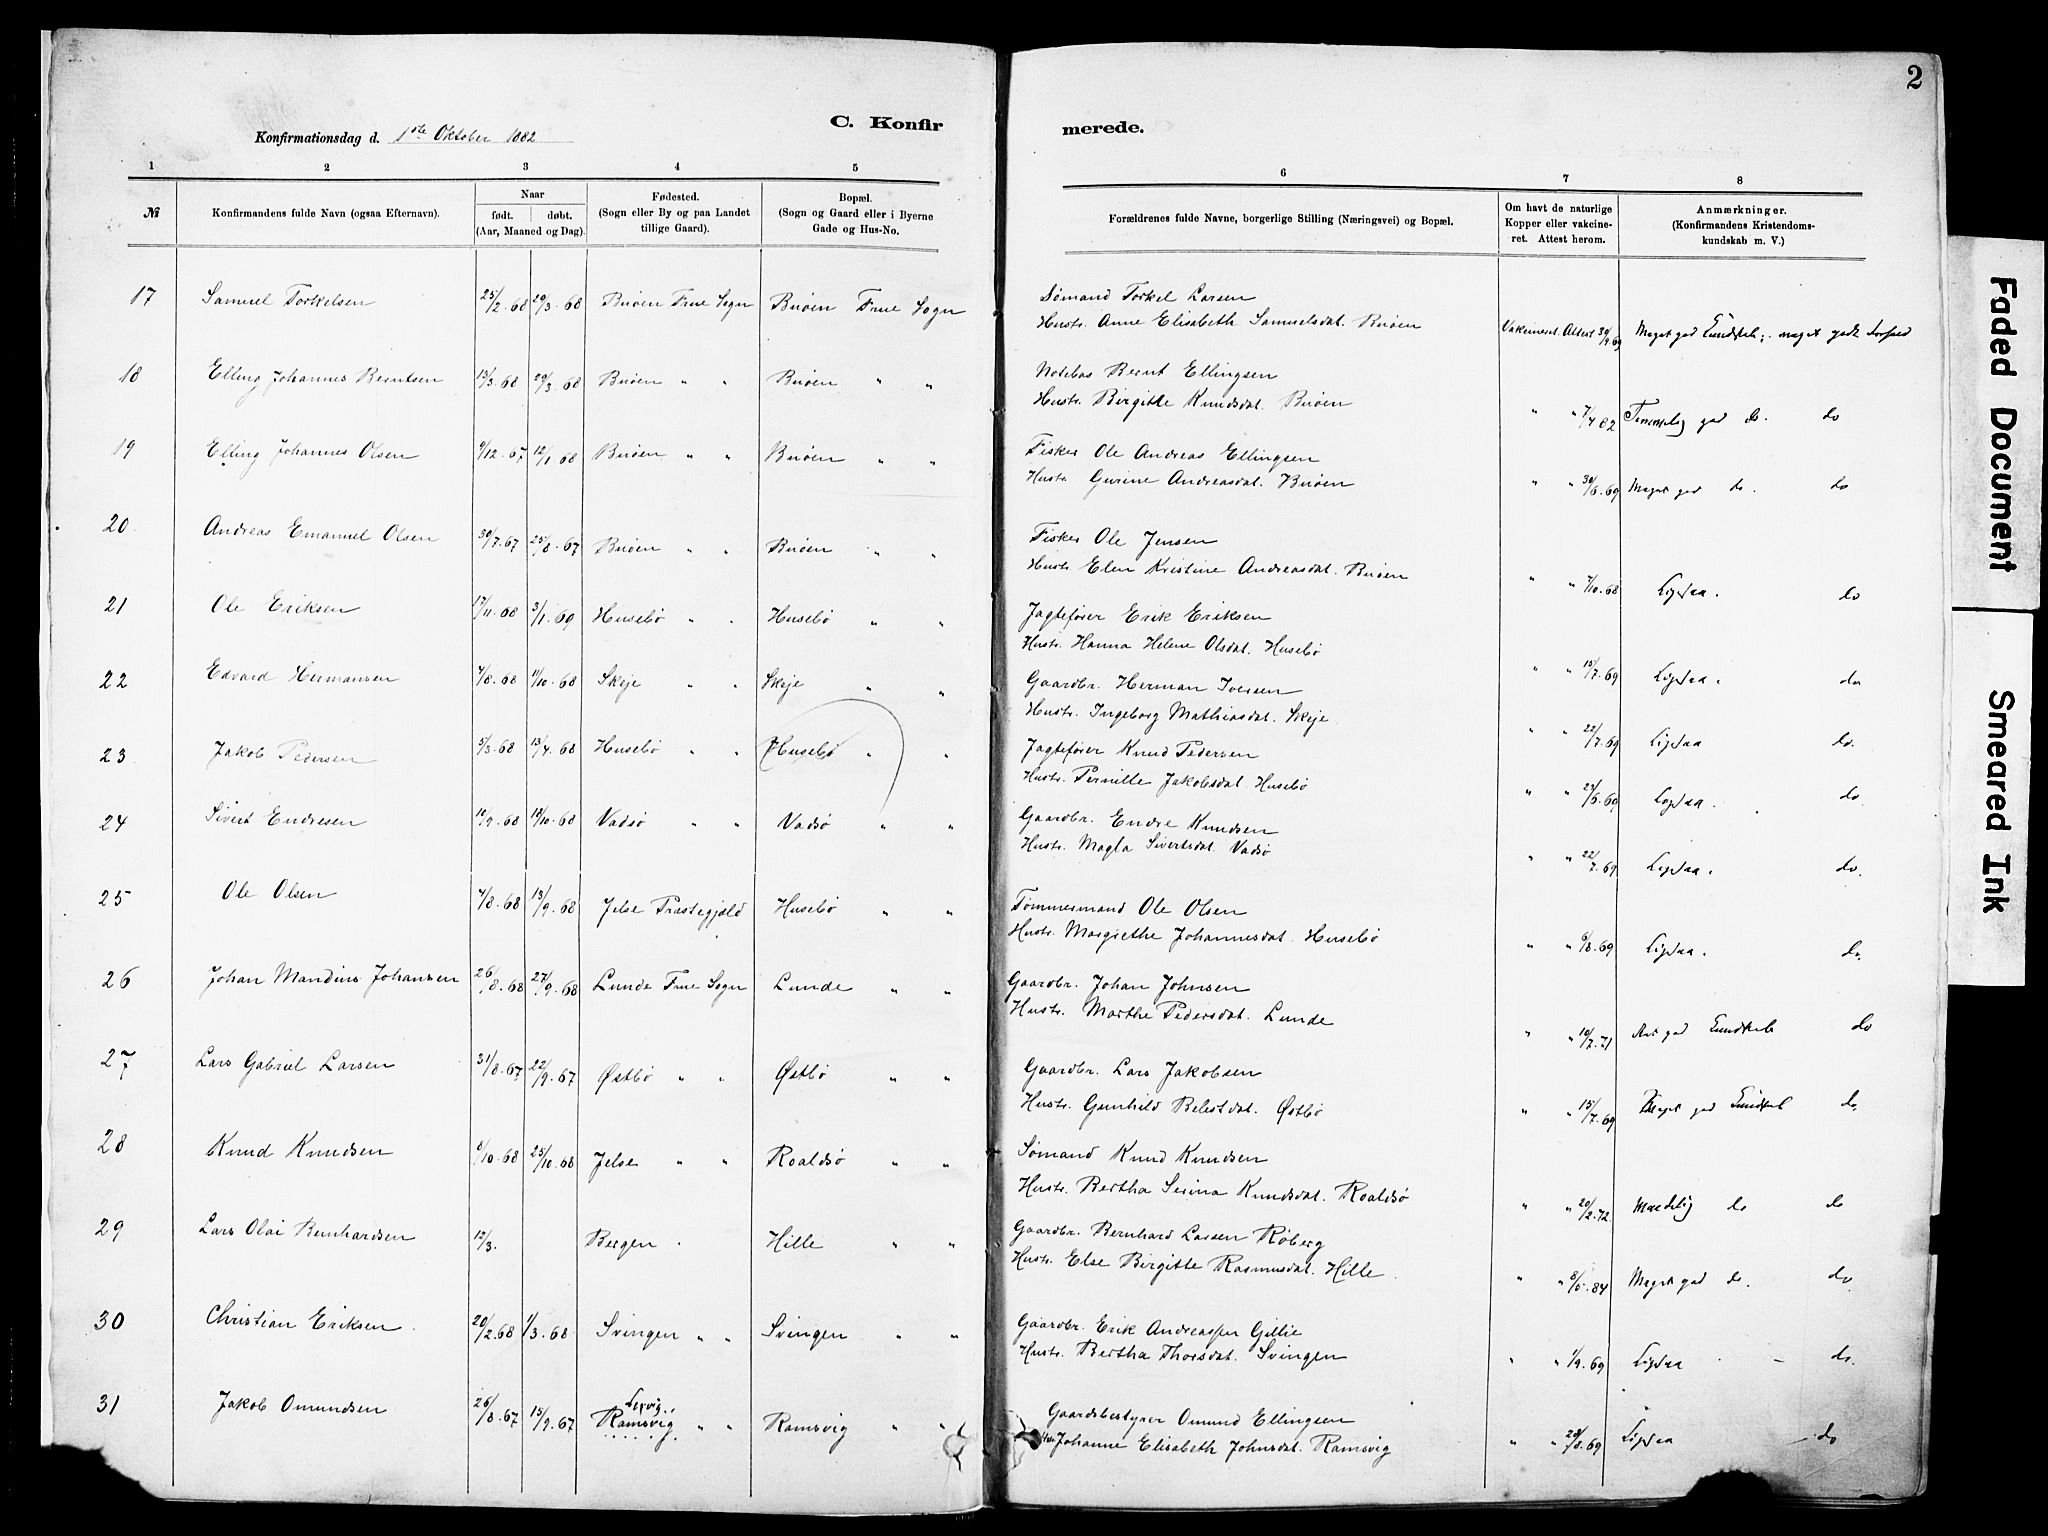 2
C. Konfir
merede.
Konfirmationsdag d. 1ste Oktober 1882
1 2 3 4 5
6 7 8
№
Konfirmandens fulde Navn (ogsaa Efternavn).
Naar
født. døbt.
(Aar, Maaned og Dag).
Fødested.
(Sogn eller By og paa Landet
tillige Gaard).
Bopæl.
(Sogn og Gaard eller i Byerne
Gade og Hus-No.
Forældrenes fulde Navne, borgerlige Stilling (Næringsvei) og Bopæl.
Om havt de naturlige
Kopper eller vakcine-
ret. Attest herom.
Anmærkninger.
(Konfirmandens Kristendoms-
kundskab m. V.)
17 Samuel Torkelsen 25/2.68 29/3.68 Buøen Frue Sogn Buøen Frue Sogn
Sømand Torkel Larsen
Hustr. Anne Elisabeth Samuelsdat. Buøen Vakcineret. Attest 30/9 69 Meget god Kundskab; meget godt Forhold
18 Elling Johannes Berntsen 13/3.68 29/3.68 Buøen " " Buøen " "
Notebas Bernt Ellingsen
Hustr. Birgitte Knudsdat. Buøen " " 7/4 82 Temmelig god do. do
19 Elling Johannes Olsen 9/12.67 12/1.68 Buøen " " Buøen " "
Fisker Ole Andreas Ellingsen
Hustr. Gurine Andreasdat. Buøen " " 30/6.69 Meget god do. do
20 Andreas Emanuel Olsen 30/7.67 25/8.67 Buøen " " Buøen " "
Fisker Ole Jensen
Hustr. Elen Kristine Andreasdat. Buøen " " 7/10.68 Ligesaa. do
21 Ole Eriksen 17/11.68 3/1.69 Husebø " " Husebø " "
Jagtefører Erik Eriksen
Hustr. Hanna Helene Olsdat. Husebø " " 15/7.69 Ligesaa. do
22 Edvard Hermansen 4/8.68 11/10.68 Skeje " " Skeje " "
Gaardbr. Herman Iversen
Hustr. Ingeborg Mathiasdat. Skeje " " 22/7.69 Ligesaa do.
23 Jakob Pedersen 5/3.68 13/4.68 Husebø " " Husebø " "
Jagtefører Knud Pedersen
Hustr. Pernille Jakobsdat. Husebø " " 23/6.69 Ligesaa. do
24 Sivert Endresen 10/9.68 18/10.68 Vadsø " " Vadsø " "
Gaardbr. Endre Knudsen
Hustr. Magla Sivertsdat. Vadsø " " 22/7.69 Ligesaa. do.
25 Ole Olsen 4/8.68 13/9.68 Jelse Præstegjæld Husebø " "
Tømmermand Ole Olsen
Hustr. Margrethe Johannesdat. Husebø " " 6/8.69 Ligesaa. do.
26 Johan Mandius Johansen 26/8.68 27/9.68 Lunde Frue Sogn Lunde " "
Gaardbr. Johan Johnsen
Hustr. Marthe Pedersdat. Lunde " " 10/7.71 god Kundskab do
27 Lars Gabriel Larsen 31/8.67 22/9.67 Østbø " " Østbø " "
Gaardbr. Lars Jakobsen
Hustr. Gunhild Belestdat. Østbø " " 15/7.69 Meget god Kundskab do.
28 Knud Knudsen 8/10.68 25/10.68 Jelse " " Roaldsø " "
Sømand Knud Knudsen
Hustr. Bertha Serina Knudsdat. Roaldsø " " 20/2.72 Maadelig do do
29 Lars Olai Bernhardsen 12/3. Bergen. Hille " "
Gaardbr. Bernhard Larsen Røberg
Hustr. Else Birgitte Rasmusdat. Hille " " 8/5.84 Meget god do. do.
30 Christian Eriksen 20/2.68 1/3.68 Svingen " " Svingen " "
Gaardbr. Erik Andreassen Gillie
Hustr. Bertha Thorsdat. Svingen " " 1/9.69 Ligesaa do.
31 Jakob Omundsen 26/8.67 15/9.67 Ramsvig " " Ramsvig " "
Gaardsbestyrer Omund Ellingsen
Johanne Elisabeth Johnsdat. Ramsvig " " 28/8.69 Ligesaa do
Faded Document
Smeared Ink